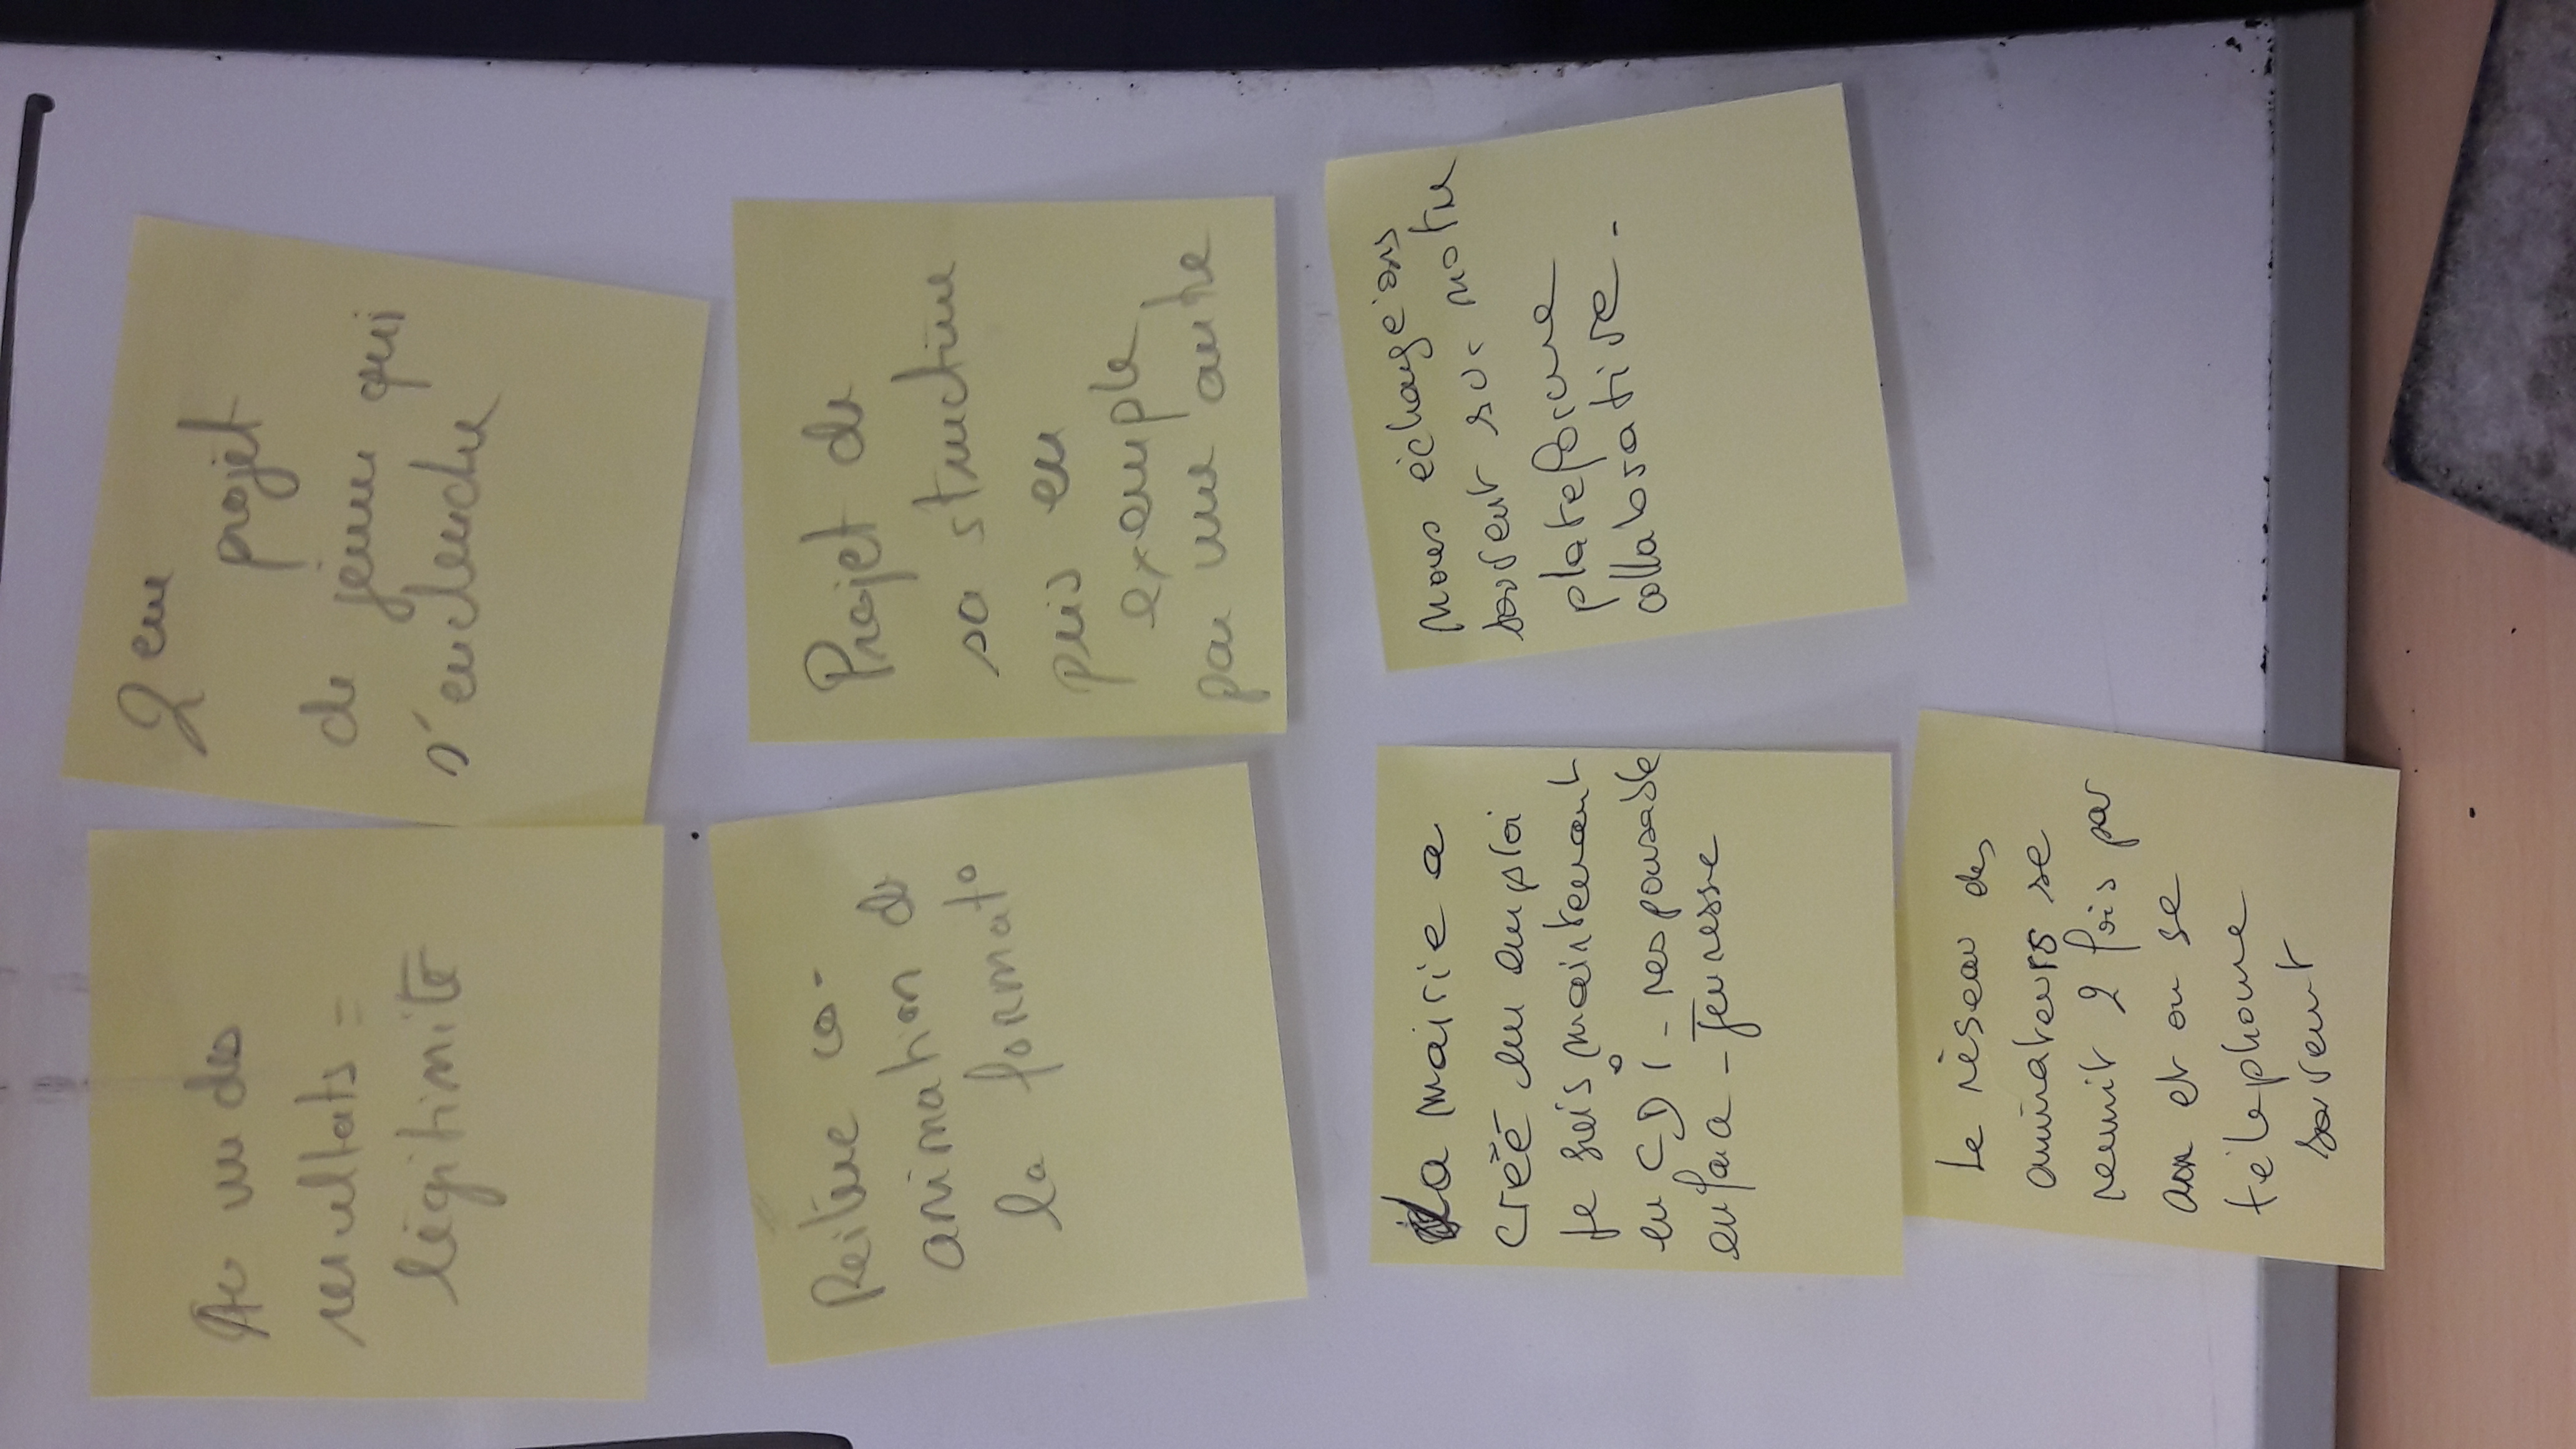 Au vu des
resultats =
légitimité
2eme
projet
de jeune qui
s'enclenche
Reitere co-
animation de
la format°
Projet de
sa structure
pris en
exemple
par une autre
La mairie a
créé un emploi
Je suis maintenant
en CDI - responsable
enfance - Jeunesse
Nous échangeons
souvent sur notre
plateforme
collaborative -
Le réseau des
animateurs se
reunit 2 fois par
an et on se
téléphone
souvent